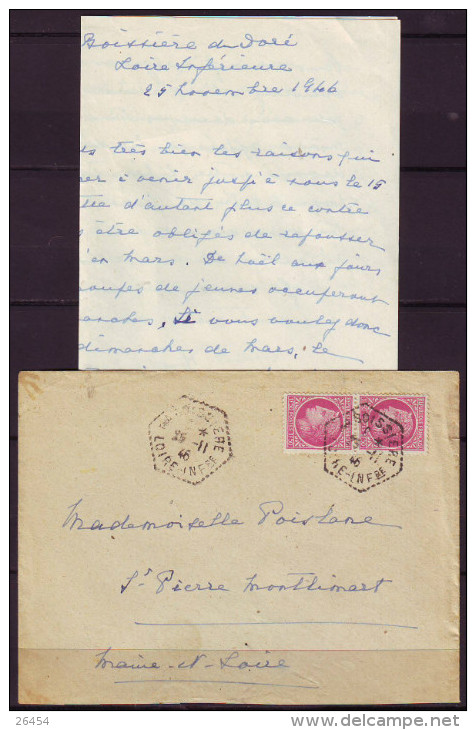 Boissière du Doré
Loire Inférieure
25 novembre 1946
très bien les raisons qui
venir jusqu'à nous le 15
d'autant plus ce contre
être obligés de repousser
en Mars. De Noël aux jours
de jeunes occuperont
manches, Si vous voulez donc
dimanches de Mars, le
BOISSIERE
25-11
46
LOIRE-INFRE
BOISSIERE
25-11
46
LOIRE-INFRE
Mademoiselle Poislane
St Pierre Montlimart
Maine-et-Loire
26454
www.delcampe.net